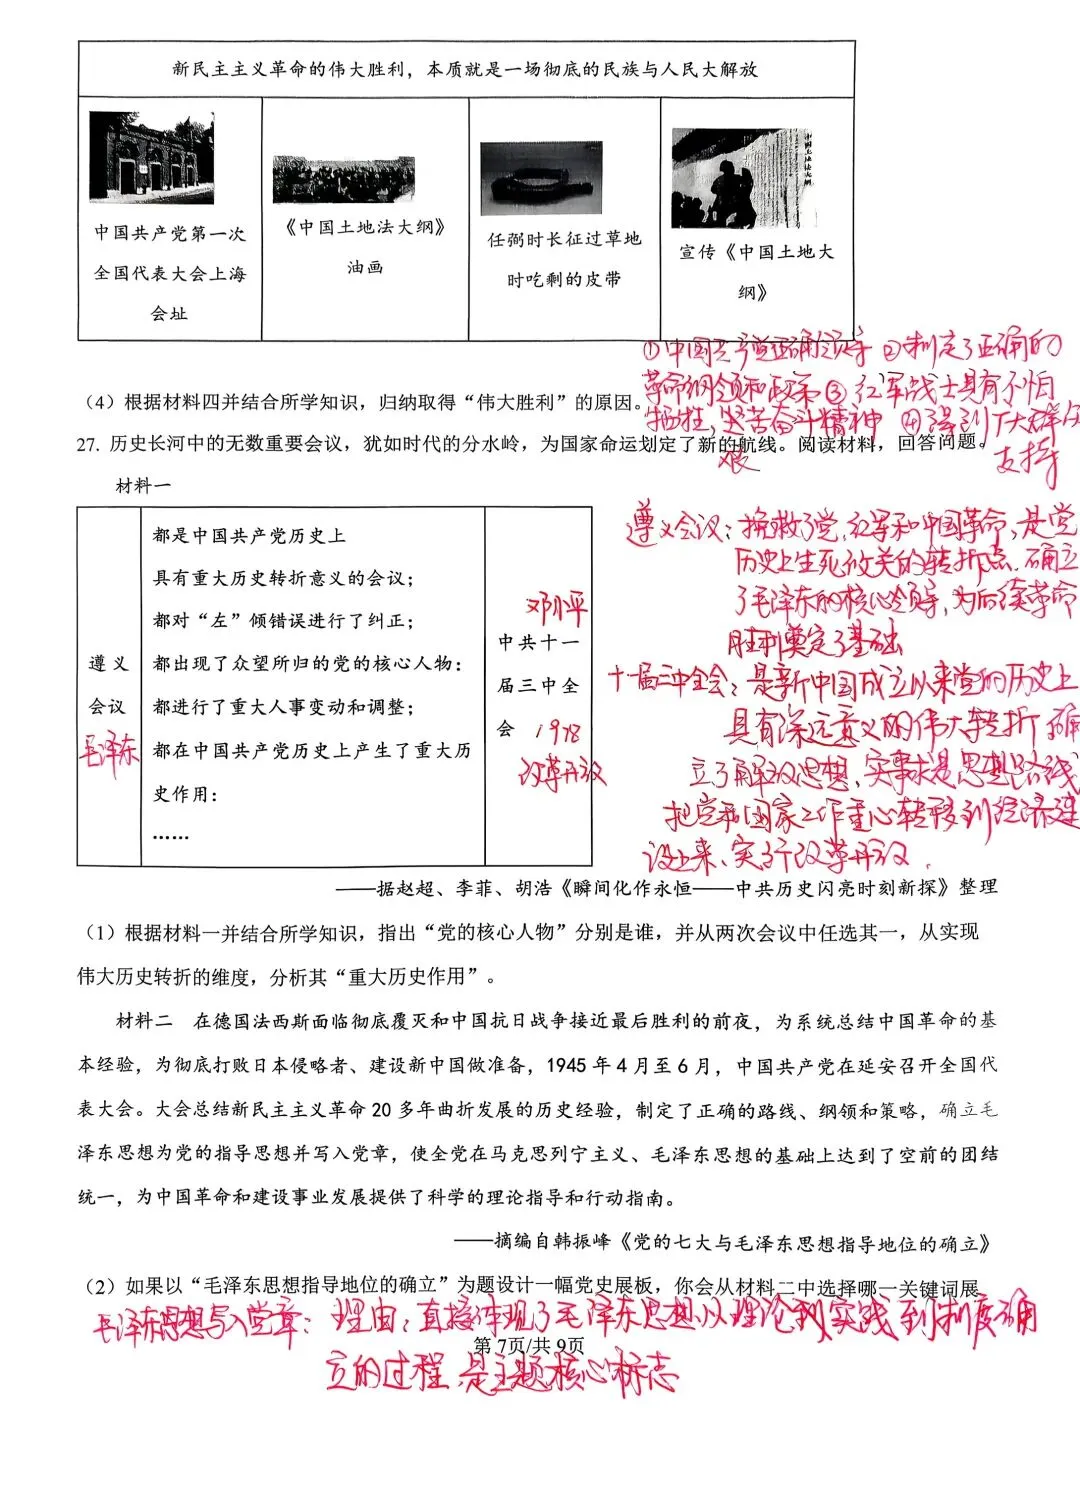 新民主主义革命的伟大胜利，本质就是一场彻底的民族与人民大解放
中国共产党第一次
全国代表大会上海
会址
《中国土地法大纲》
油画
任弼时长征过草地
时吃剩的皮带
中国土地法大纲
宣传《中国土地大
纲》
①中国共产党正确领导 ②制定了正确的
革命纲领和政策③红军战士具有不怕
牺牲，艰苦奋斗精神 ④得到广大群众
支持
（4）根据材料四并结合所学知识，归纳取得“伟大胜利”的原因。
27. 历史长河中的无数重要会议，犹如时代的分水岭，为国家命运划定了新的航线。阅读材料，回答问题。
材料一
遵义
会议
毛泽东
都是中国共产党历史上
具有重大历史转折意义的会议；
都对“左”倾错误进行了纠正；
都出现了众望所归的党的核心人物：
都进行了重大人事变动和调整；
都在中国共产党历史上产生了重大历
史作用：
……
邓小平
中共十一
届三中全
会 1978
改革开放
遵义会议：挽救了党，红军和中国革命，是党
历史上生死攸关的转折点.确立
了毛泽东的核心领导，为后续革命
胜利奠定了基础
十一届三中全会：是新中国成立以来党的历史上
具有深远意义的伟大转折 确
立了解放思想、实事求是思想路线
把党和国家工作重心转移到经济建
设上来、实行改革开放.
——据赵超、李菲、胡浩《瞬间化作永恒——中共历史闪亮时刻新探》整理
（1）根据材料一并结合所学知识，指出“党的核心人物”分别是谁，并从两次会议中任选其一，从实现
伟大历史转折的维度，分析其“重大历史作用”。
材料二 在德国法西斯面临彻底覆灭和中国抗日战争接近最后胜利的前夜，为系统总结中国革命的基
本经验，为彻底打败日本侵略者、建设新中国做准备，1945 年 4 月至 6 月，中国共产党在延安召开全国代
表大会。大会总结新民主主义革命 20 多年曲折发展的历史经验，制定了正确的路线、纲领和策略，确立毛
泽东思想为党的指导思想并写入党章，使全党在马克思列宁主义、毛泽东思想的基础上达到了空前的团结
统一，为中国革命和建设事业发展提供了科学的理论指导和行动指南。
——摘编自韩振峰《党的七大与毛泽东思想指导地位的确立》
（2）如果以“毛泽东思想指导地位的确立”为题设计一幅党史展板，你会从材料二中选择哪一关键词展
毛泽东思想写入党章：理由：直接体现了毛泽东思想从理论到实践到制度确
第 7页/共 9页
立的过程，是主题核心标志